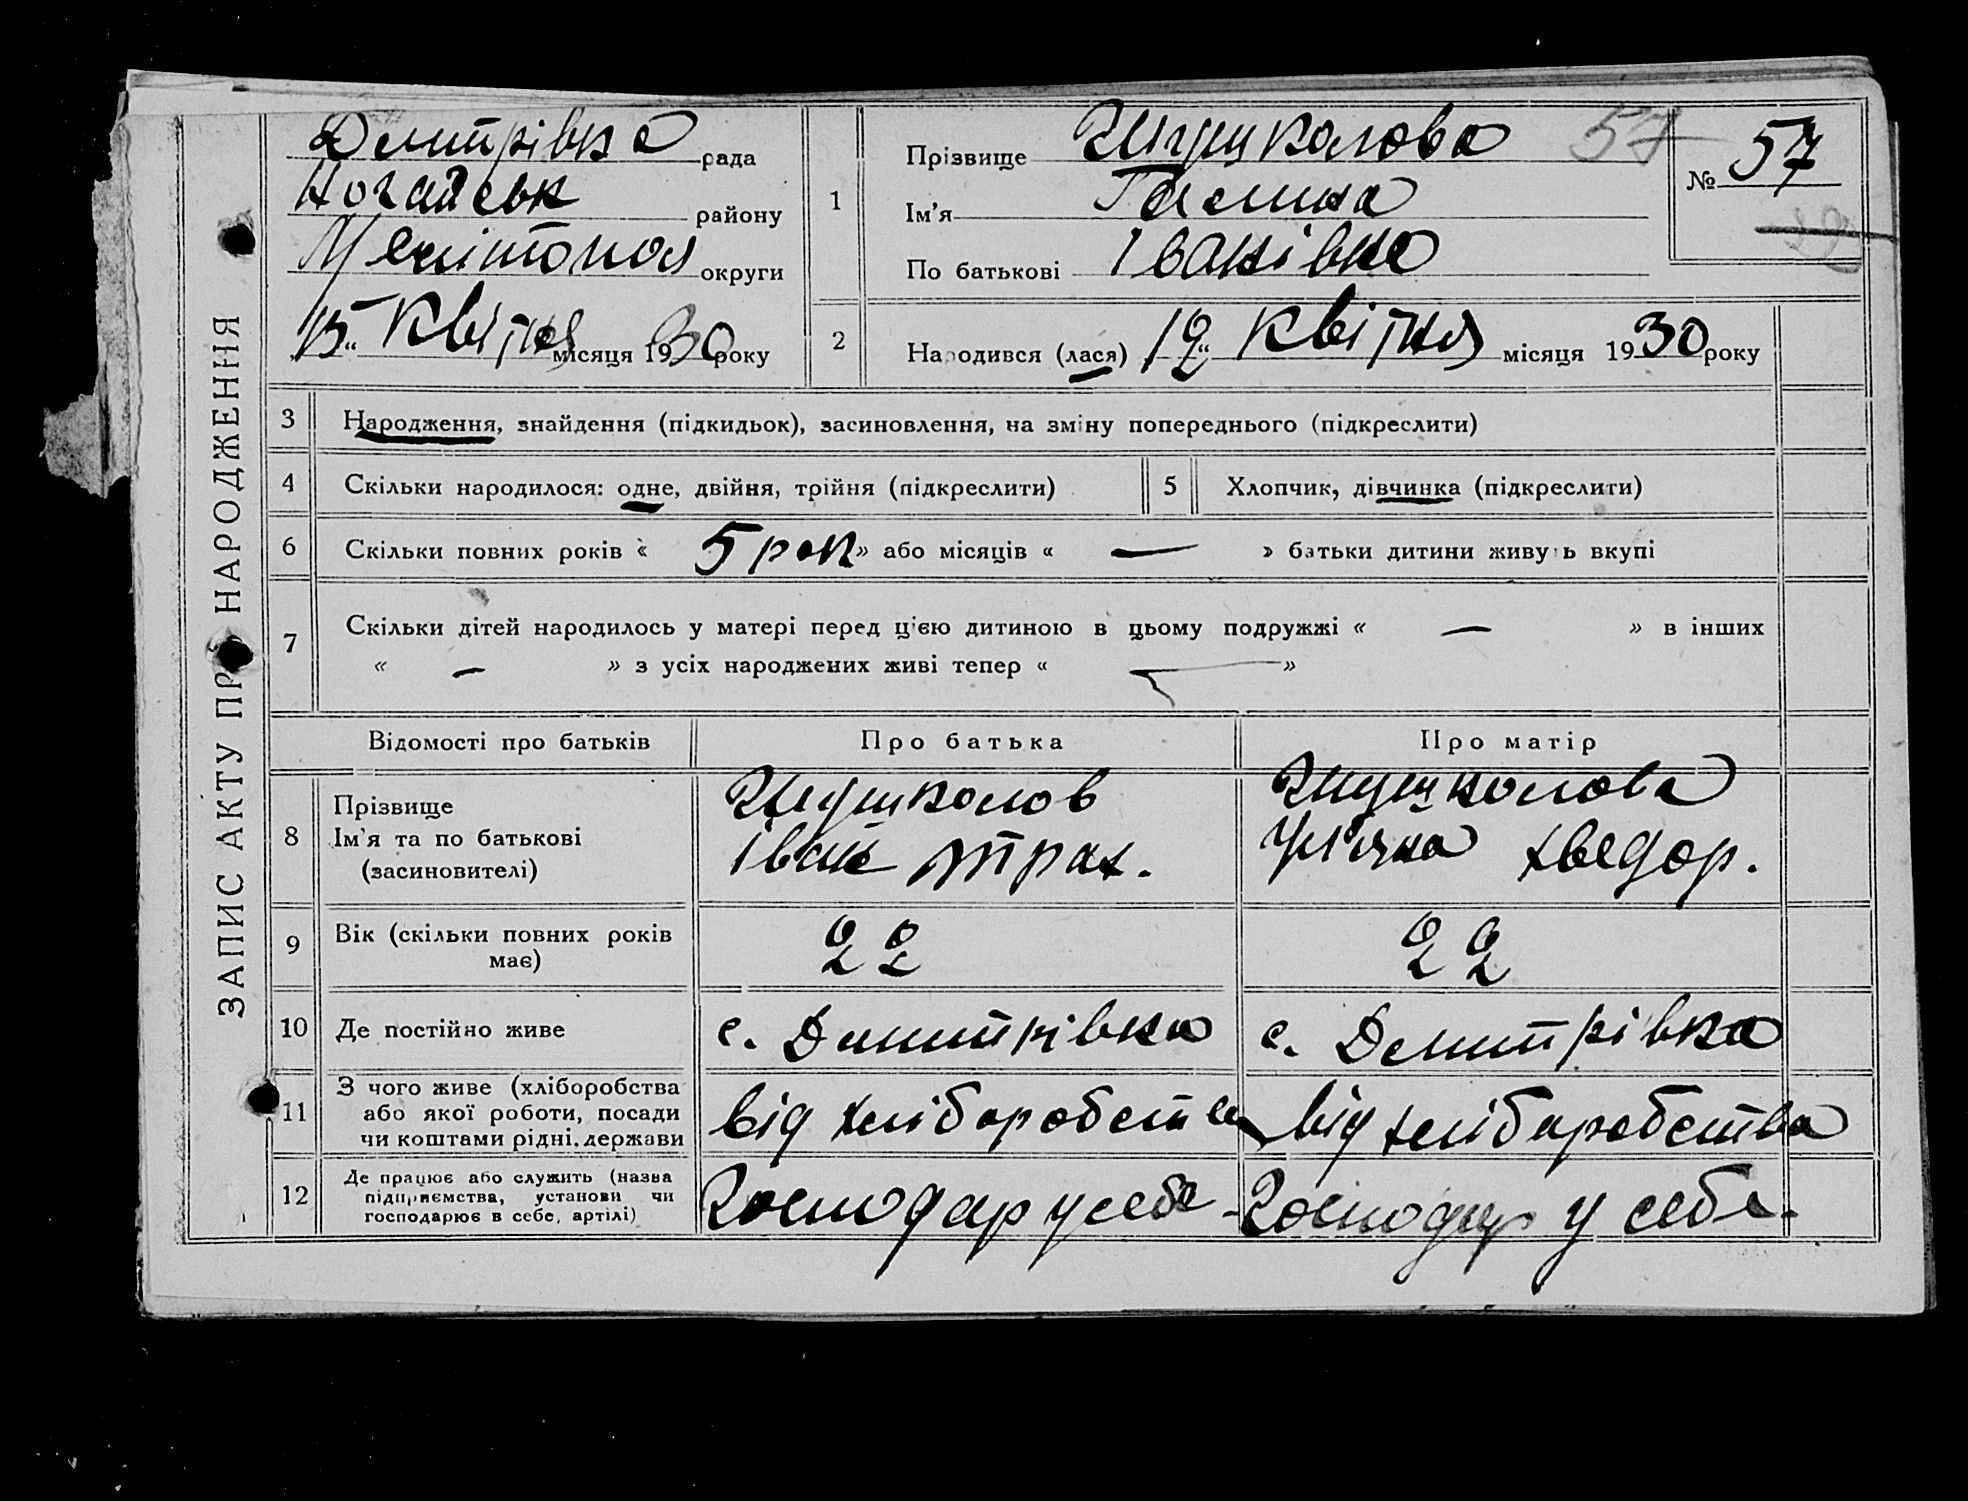 ЗАПИС АКТУ ПРО НАРОДЖЕННЯ
Дмитрівка рада
Ногайськ району
Мелітополя округи
15 « Квітня місяця 1930 року
1
Прізвище 57
Ім'я Галина
По батькові Іванівна
№ 57
2
Народився (лася) 12 « Квітня місяця 1930 року
3 Народження, знайдення (підкидьок), засиновлення, на зміну попереднього (підкреслити)
4 Скільки народилося: одне, двійня, трійня (підкреслити) 5 Хлопчик, дівчинка (підкреслити)
6 Скільки повних років « 5 рок » або місяців « — » батьки дитини живуть вкупі
7 Скільки дітей народилось у матері перед цією дитиною в цьому подружжі « — » в інших
« — » з усіх народжених живі тепер « — »
Відомості про батьків Про батька Про матір
8 Прізвище
Ім'я та по батькові
(засновителі)
Іван хведор.
9 Вік (скільки повних років має) 22 22
10 Де постійно живе с. Дмитрівка с. Дмитрівка
11 З чого живе (хліборобства
або якої роботи, посади
чи коштами рідні, держави
від хліборобства від хліборобства
12 Де працює або служить (назва
підприємства, установи чи
господарює в себе, артілі)
Господар у себе - Господар у себе.